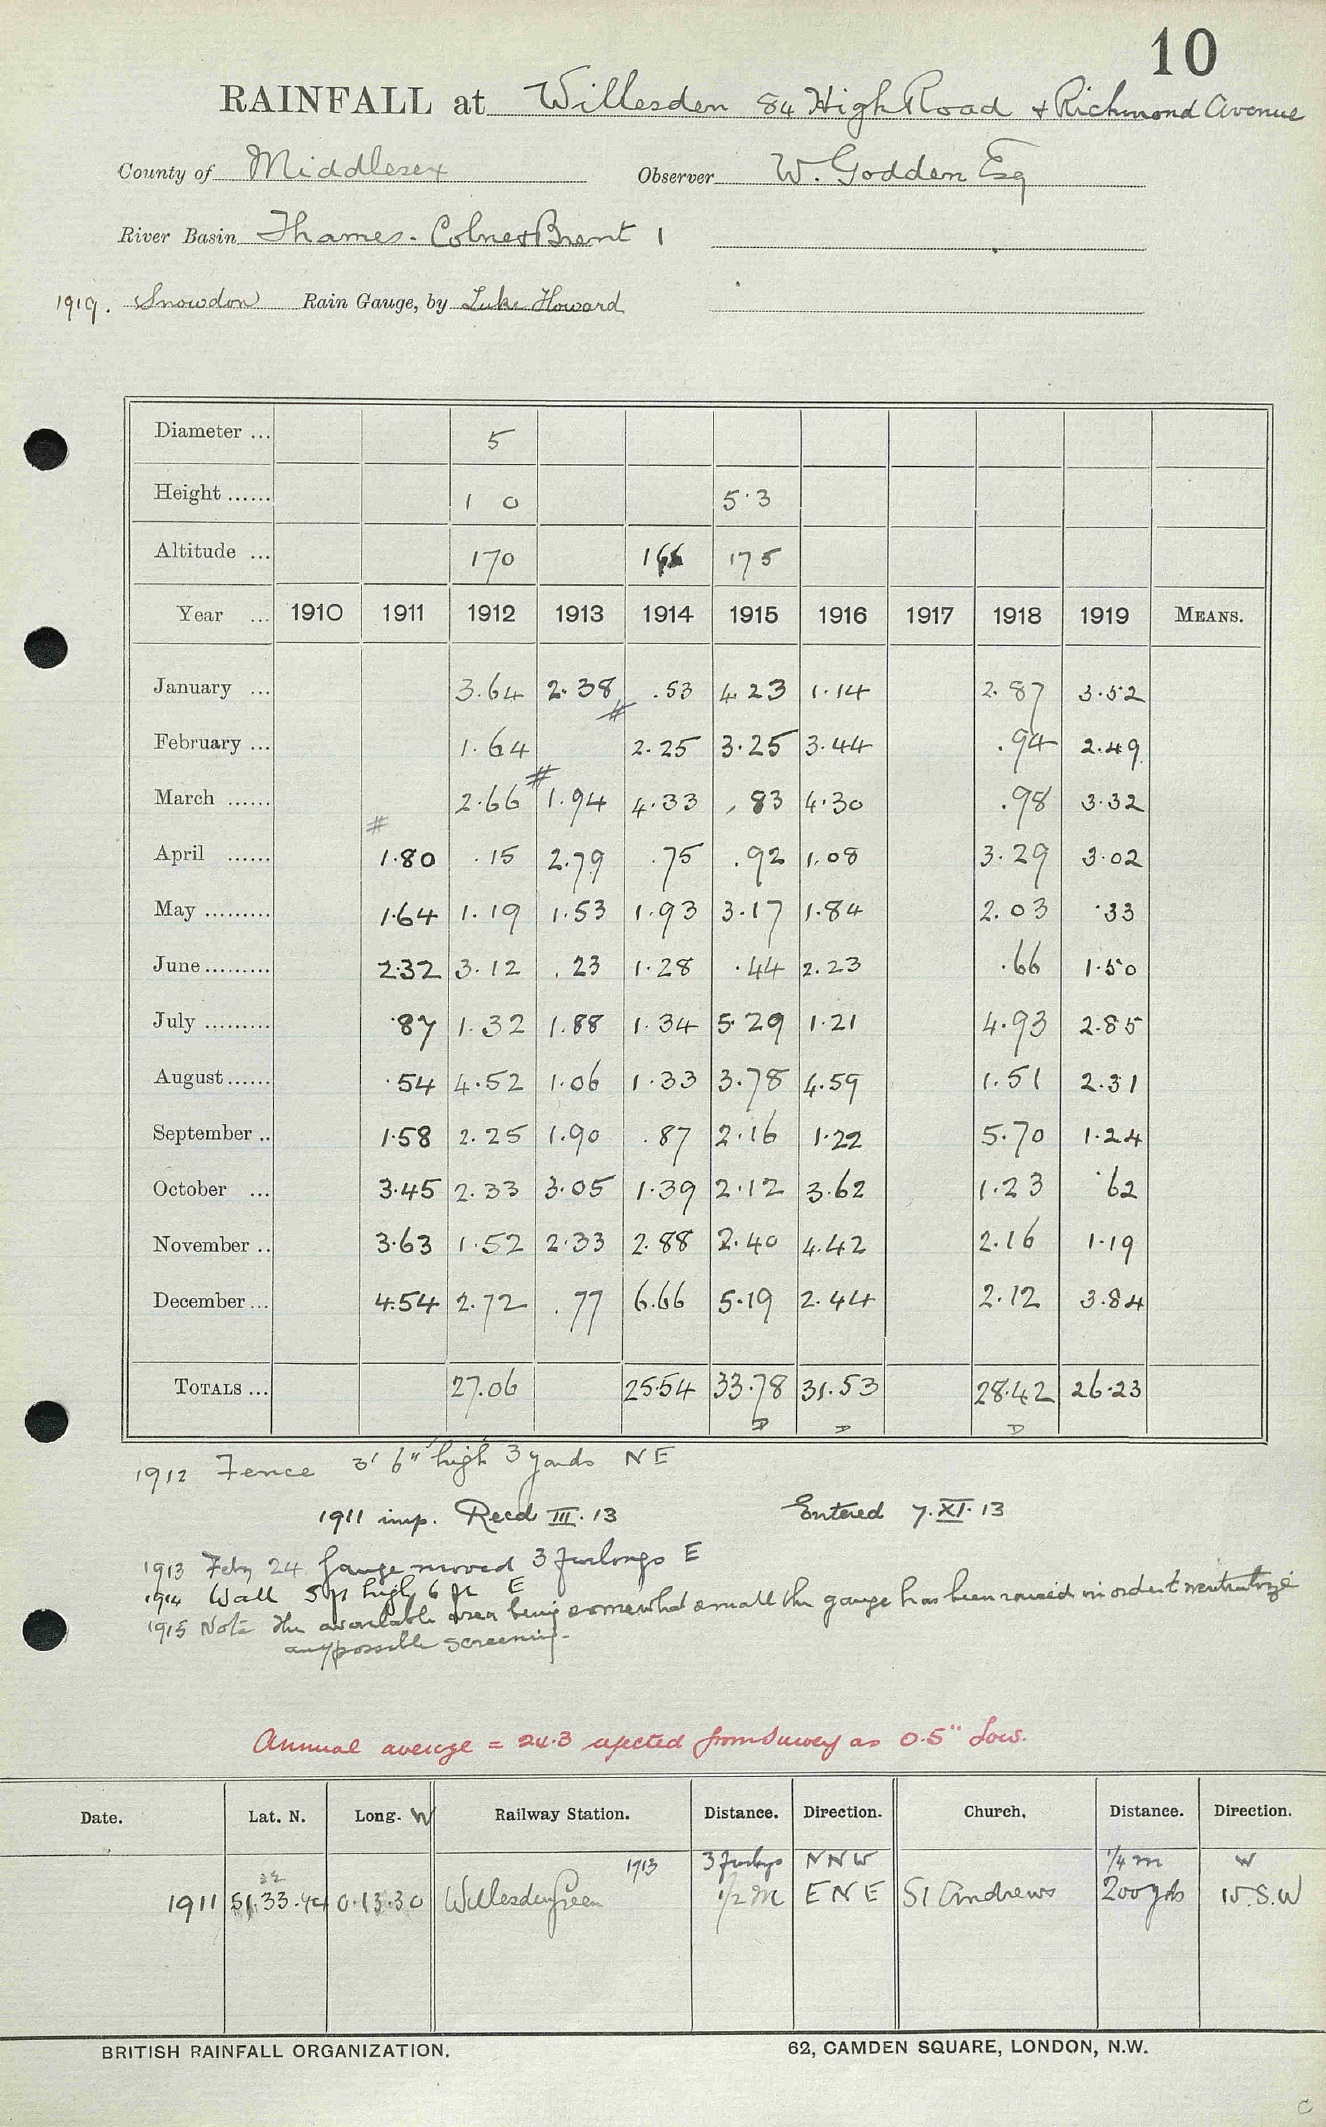 10
RAINFALL at Willesden 84 High Road & Richmond Avenue
County of Middlesex Observer W. Godden Esq
River Basin Thames. Colne & Brent 1
1919. Snowdon Rain Gauge, by Luke Howard
Diameter ... 5
Height ...... 1 0 5.3
Altitude ... 170 166 175
Year ... 1910 1911 1912 1913 1914 1915 1916 1917 1918 1919 MEANS.
January ... 3.64 2.38 .53 4.23 1.14 2.87 3.52
February ... 1.64 # 2.25 3.25 3.44 .94 2.49
March ...... 2.66 # 1.94 4.33 .83 4.30 .98 3.32
April ...... # 1.80 .15 2.79 .75 .92 1.08 3.29 3.02
May ......... 1.64 1.19 1.53 1.93 3.17 1.84 2.03 .33
June ......... 2.32 3.12 .23 1.28 .44 2.23 .66 1.50
July ......... .87 1.32 1.88 1.34 5.29 1.21 4.93 2.85
August ...... .54 4.52 1.06 1.33 3.78 4.59 1.51 2.31
September .. 1.58 2.25 1.90 .87 2.16 1.22 5.70 1.24
October ... 3.45 2.33 3.05 1.39 2.12 3.62 1.23 .62
November .. 3.63 1.52 2.33 2.88 2.40 4.42 2.16 1.19
December ... 4.54 2.72 .77 6.66 5.19 2.44 2.12 3.84
TOTALS ... 27.06 25.54 33.78 31.53 28.42 26.23
D D D
1912 Fence 3' 6" high 3 yards NE
1911 imp. Recd III.13 Entered 7.XI.13
1913 Feby 24 Gauge moved 3 furlongs E
1914 Wall 5 ft high 6 ft E
1915 Note The available area being somewhat small the gauge has been raised in order to neutralize
any possible screening.
Annual average = 24.3 from Survey as 0.5" low.
Date. Lat. N. Long. W Railway Station. Distance. Direction. Church. Distance. Direction.
1913 3 furlongs NNW 1/4 m W
32
1911 51.33.44 0.13.30 Willesden Green 1/2 M ENE St Andrews 200 yds W.S.W
BRITISH RAINFALL ORGANIZATION. 62, CAMDEN SQUARE, LONDON, N.W.
C